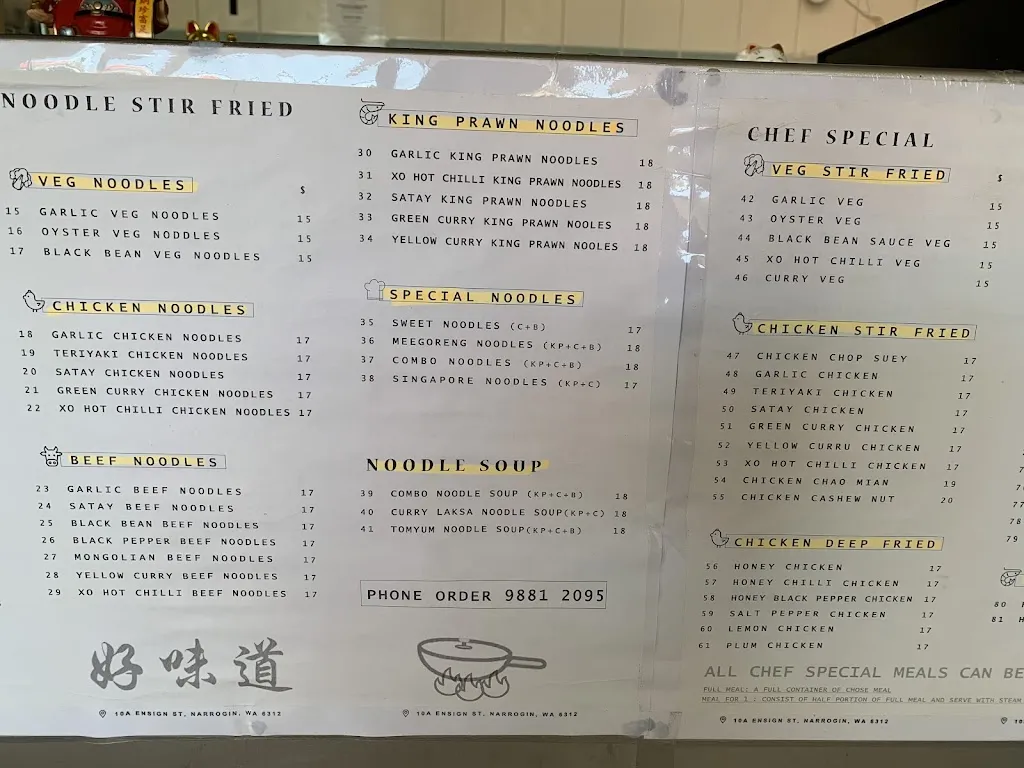 NOODLE STIR FRIED
VEG NOODLES
$
15 GARLIC VEG NOODLES 15
16 OYSTER VEG NODDLES 15
17 BLACK BEAN VEG NOODLES 15
CHICKEN NOODLES
18 GARLIC CHICKEN NOODLES 17
19 TERIYAKI CHICKEN NOODLES 17
20 SATAY CHICKEN NOODLES 17
21 GREEN CURRY CHICKEN NOODLES 17
22 XO HOT CHILLI CHICKEN NOODLES 17
BEEF NOODLES
23 GARLIC BEEF NOODLES 17
24 SATAY BEEF NOODLES 17
25 BLACK BEAN BEEF NOODLES 17
26 BLACK PEPPER BEEF NOODLES 17
27 MONGOLIAN BEEF NOODLES 17
28 YELLOW CURRY BEEF NOODLES 17
29 XO HOT CHILLI BEEF NOODLES 17
好味道
10A ENSIGN ST, NARROGIN, WA 6312
KING PRAWN NOODLES
30 GARLIC KING PRAWN NOODLES 18
31 XO HOT CHILLI KING PRAWN NOODLES 18
32 SATAY KING PRAWN NOODLES 18
33 GREEN CURRY KING PRAWN NOOLES 18
34 YELLOW CURRY KING PRAWN NOOLES 18
SPECIAL NOODLES
35 SWEET NOODLES (C+B) 17
36 MEEGORENG NOODLES (KP+C+B) 18
37 COMBO NOODLES (KP+C+B) 18
38 SINGAPORE NOODLES (KP+C) 17
NOODLE SOUP
39 COMBO NOODLE SOUP (KP+C+B) 18
40 CURRY LAKSA NOODLE SOUP(KP+C) 18
41 TOMYUM NOODLE SOUP(KP+C+B) 18
PHONE ORDER 9881 2095
10A ENSIGN ST, NARROGIN, WA 6312
CHEF SPECIAL
VEG STIR FRIED
$
42 GARLIC VEG 15
43 OYSTER VEG 15
44 BLACK BEAN SAUCE VEG 15
45 XO HOT CHILLI VEG 15
46 CURRY VEG 15
CHICKEN STIR FRIED
47 CHICKEN CHOP SUEY 17
48 GARLIC CHICKEN 17
49 TERIYAKI CHICKEN 17
50 SATAY CHICKEN 17
51 GREEN CURRY CHICKEN 17
52 YELLOW CURRU CHICKEN 17
53 XO HOT CHILLI CHICKEN 17
54 CHICKEN CHAO MIAN 19
55 CHICKEN CASHEW NUT 20
CHICKEN DEEP FRIED
56 HONEY CHICKEN 17
57 HONEY CHILLI CHICKEN 17
58 HONEY BLACK PEPPER CHICKEN 17
59 SALT PEPPER CHICKEN 17
60 LEMON CHICKEN 17
61 PLUM CHICKEN 17
ALL CHEF SPECIAL MEALS CAN BE
FULL MEAL: A FULL CONTAINER OF CHOSE MEAL
MEAL FOR 1 : CONSIST OF HALF PORTION OF FULL MEAL AND SERVE WITH STEAM
10A ENSIGN ST, NARROGIN, WA 6312
77
78
79
80
81 H
10